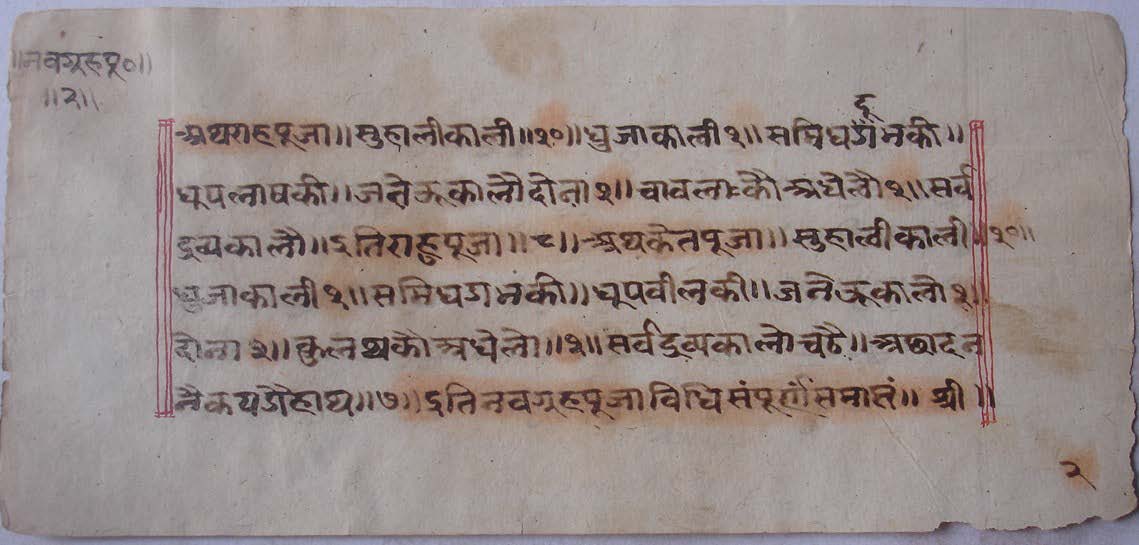 ॥नवग्रहपू०॥
॥२॥
अथराहपूजा॥सुहालीकाली॥१०॥धुजाकाली१॥समिधदूनकी॥
धूपलाषकी॥जनेऊकालौदोना१॥चावलाःकौअधेलौ१॥सर्व
द्रव्यकालौ॥इतिराहुपूजा॥८॥अथकेतपूजा॥सुहालीकाली॥१०॥
धुजाकाली१॥समिध की॥धूपवीलकी॥जनेऊकालौ१॥
दोना१॥कुलथकौअधेलो॥१॥सर्वद्रव्यकालोचढै॥अछादन
॥७॥इतिनवग्रहपूजाविधिसंपूर्णंसमाप्तं॥श्री॥
२